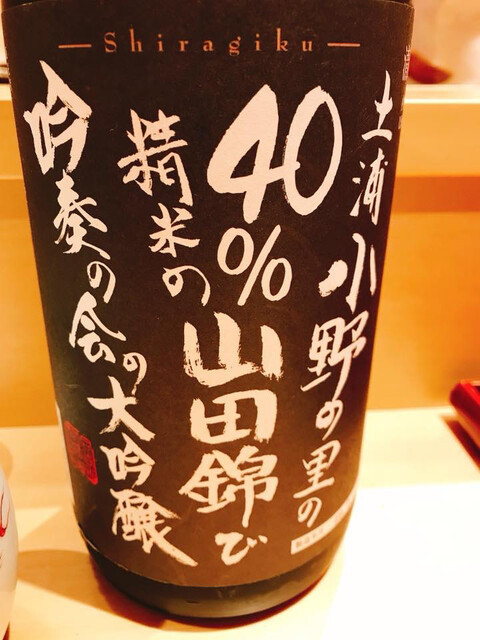 Shiragiku
土浦小野の里の
40%
精米の
山田錦で
吟奏の会の大吟醸